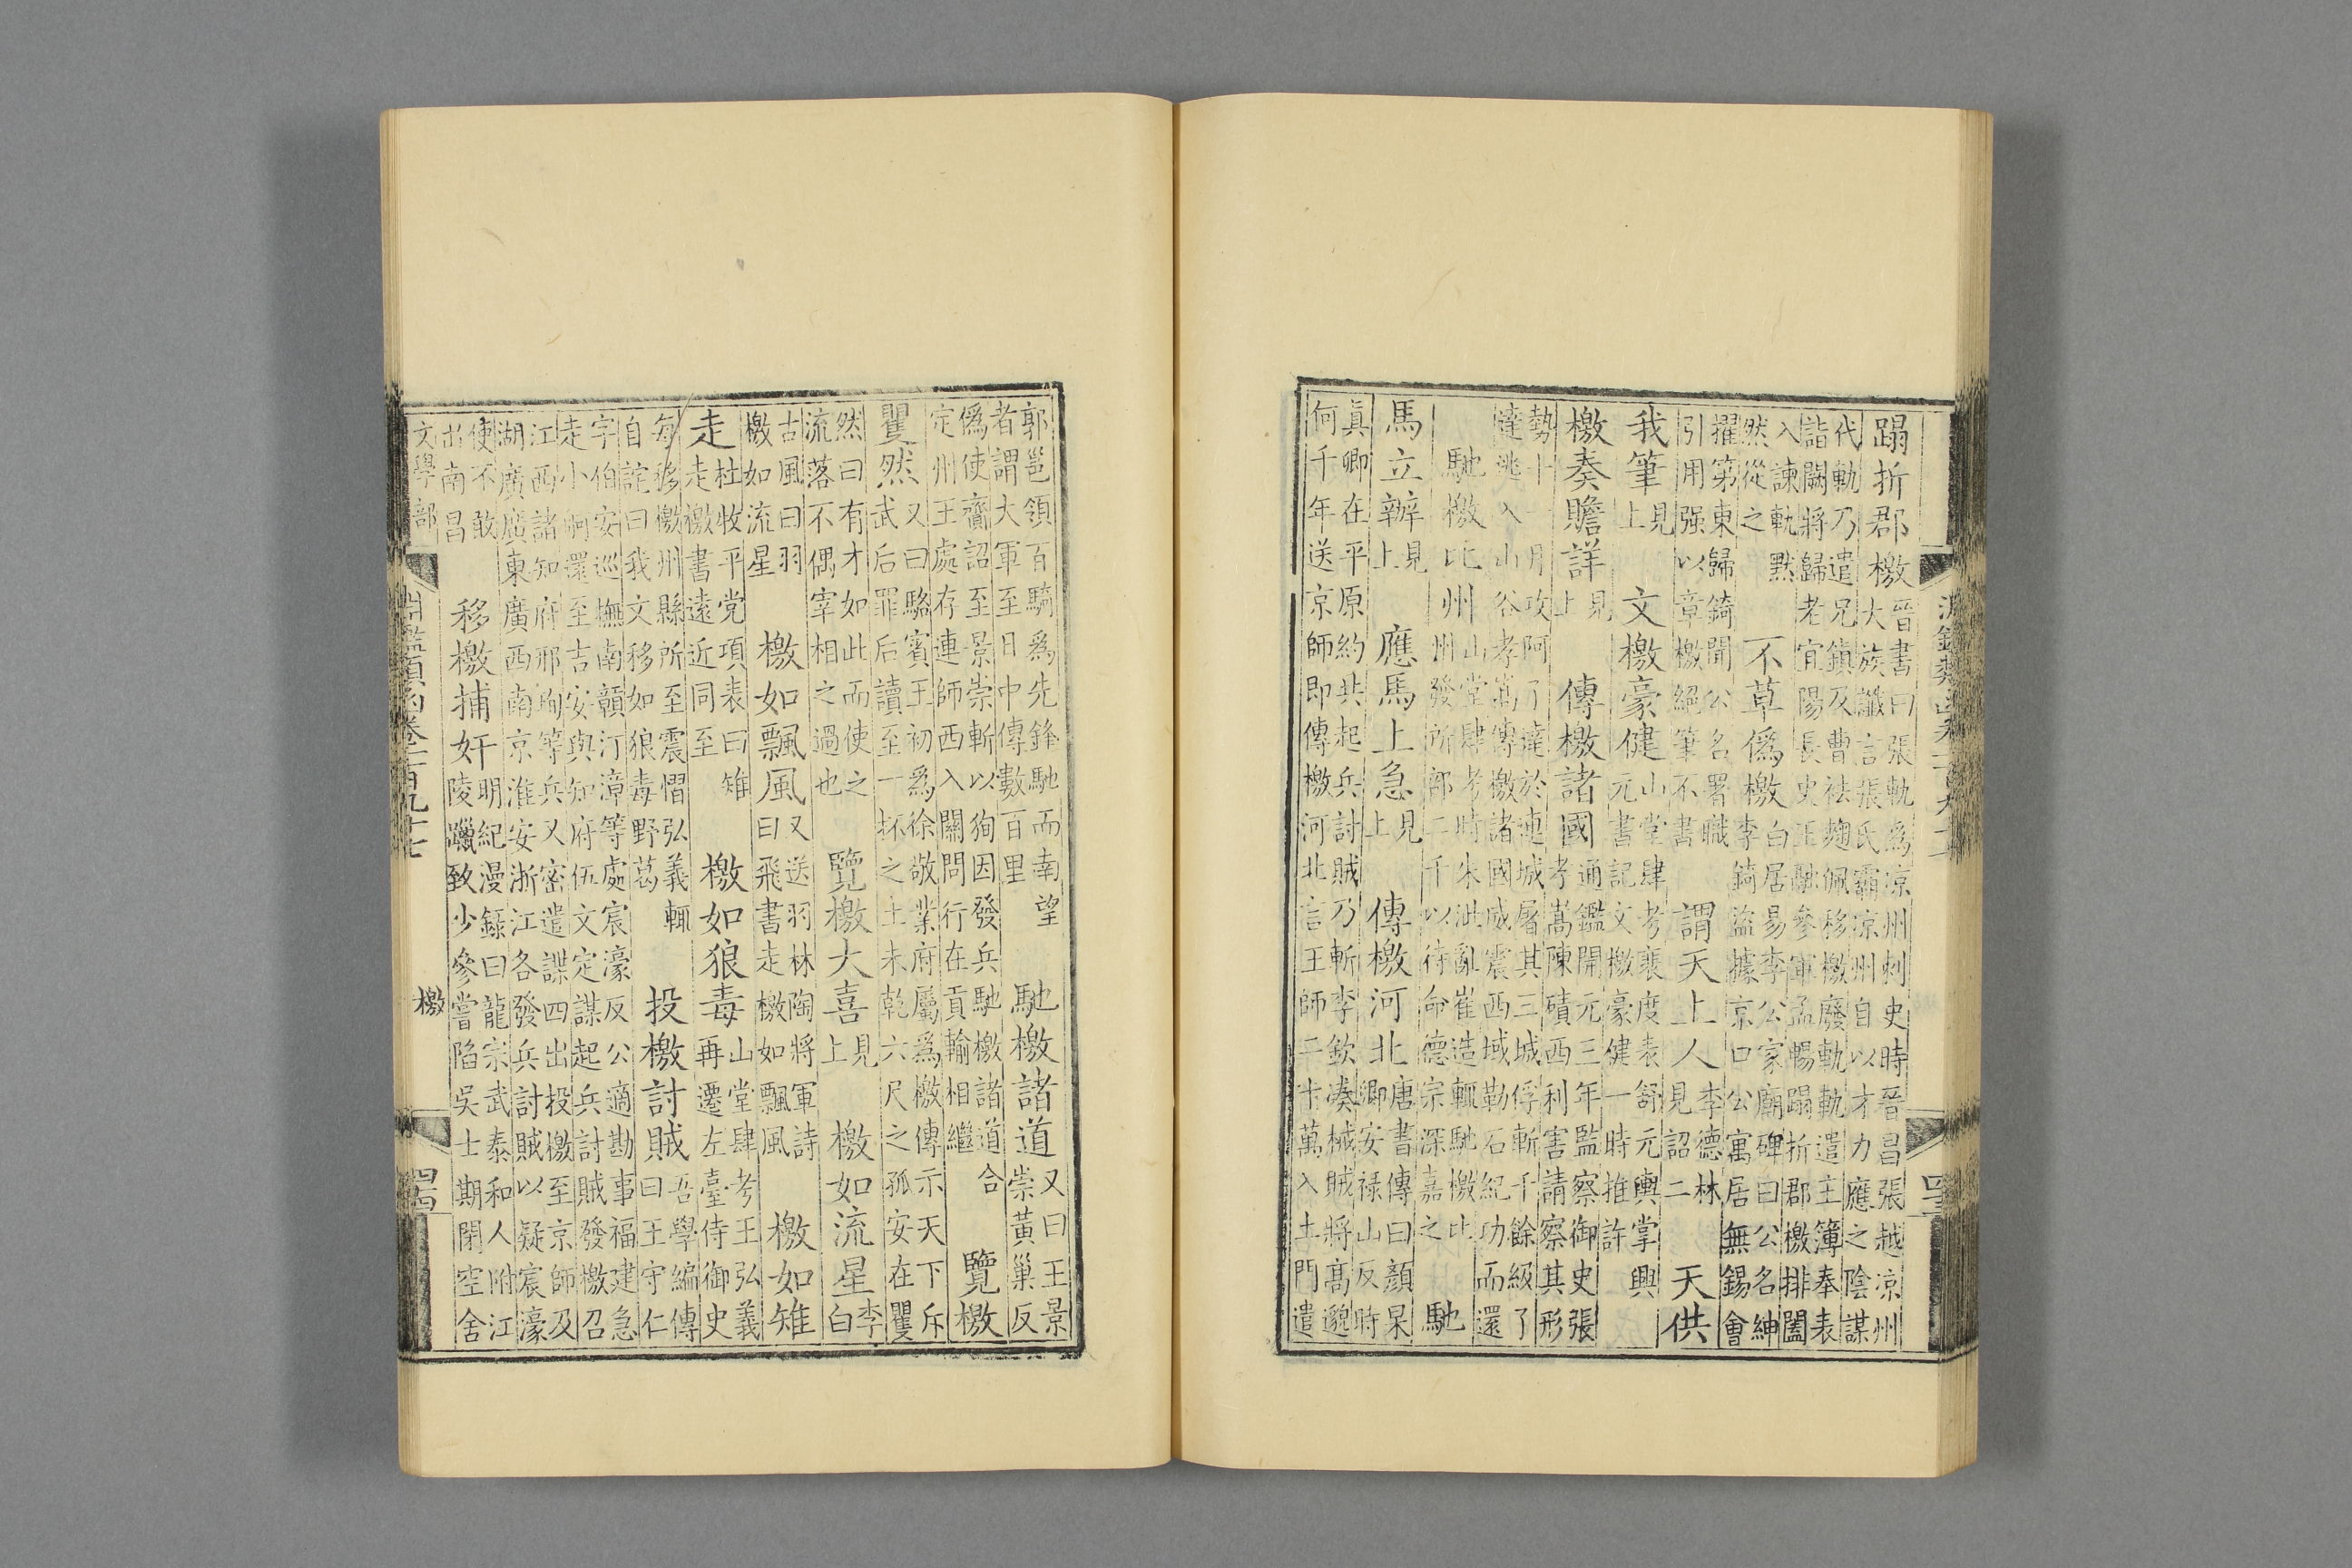 淵鑑類函卷一百九十七
蹋折郡檄
晉書曰張軌爲凉州刺史時晉昌張越凉州
大族讖言張氏霸凉州自以才力應之陰謀
代軌乃遣兄鎮及曹祛麹佩移檄廢軌軌遣主簿奉表
詣闕將歸老宜陽長史王融參軍孟暢蹋折郡檄排闔
入諫軌默
然從之
不草僞檄
白居易李公家廟碑曰公名紳
李錡盜據京口公寓居無錫會
擢第東歸錡聞公名署職
引用强以章檄絕筆不書
謂天上人
李德林
見詔二
天供
我筆
見上
文檄豪健
山堂肆考裴度表舒元輿掌興
元書記文檄豪健一時推許
檄奏贍詳
見上
傳檄諸國
通鑑開元三年監察御史張
孝嵩陳磧西利害請察其形
勢十一月攻阿了達於連城屠其三城俘斬千餘級了
達逃入山谷孝嵩傳檄諸國威震西域勒石紀功而還
馳檄比州
山堂肆考時朱泚亂崔造輒馳檄比
州發所部二千以待命德宗深嘉之
馳
馬立辦
見上
應馬上急
見上
傳檄河北
唐書傳曰顏杲
卿安祿山反時
眞卿在平原約共起兵討賊乃斬李欽湊械賊將高邈
何千年送京師即傳檄河北言王師二十萬入土門遣
郭邕領百騎爲先鋒馳而南望
者謂大軍至日中傳數百里
馳檄諸道
又曰王景
崇黃巢反
僞使齎詔至景崇斬以狥因發兵馳檄諸道合
定州王處存連師西入關問行在貢輸相繼
覽檄
矍然
又曰駱賓王初爲徐敬業府屬爲檄傳示天下斥
武后罪后讀至一抔之土未乾六尺之孤安在矍
然曰有才如此而使之
流落不偶宰相之過也
覽檄大喜
見上
檄如流星
李
白
古風曰羽
檄如流星
檄如飄風
又送羽林陶將軍詩
曰飛書走檄如飄風
檄如雉
走
杜牧平党項表曰雉
走檄書遠近同至
檄如狼毒
山堂肆考王弘義
再遷左臺侍御史
每移檄州縣所至震慴弘義輒
自詫曰我文移如狼毒野葛
投檄討賊
吾學編傳
曰王守仁
字伯安巡撫南贛汀漳等處宸濠反公適勘事福建急
走小舸還至吉安與知府伍文定謀起兵討賊發檄召
江西諸知府邢珣等兵又密遣諜四出投檄至京師及
湖廣廣東廣西南京淮安浙江各發兵討賊以疑宸濠
使不敢
出南昌
移檄捕奸
明紀漫錄曰龍宗武泰和人附江
陵躐致少參嘗陷吳士期閉空舍
文學部
淵鑑類函卷一百九十七
檄
四四